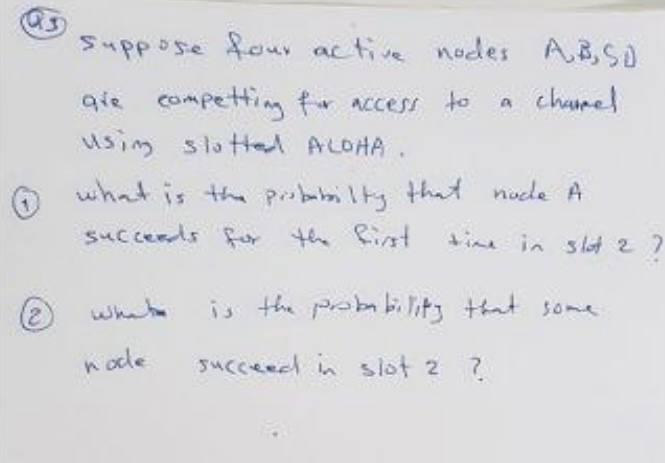 Q3
suppose four active nodes A,B,C,D
are competting for access to a channel
using slotted ALOHA.
① what is the probability that node A
succeeds for the first time in slot 2 ?
② what is the probability that some
node succeed in slot 2 ?